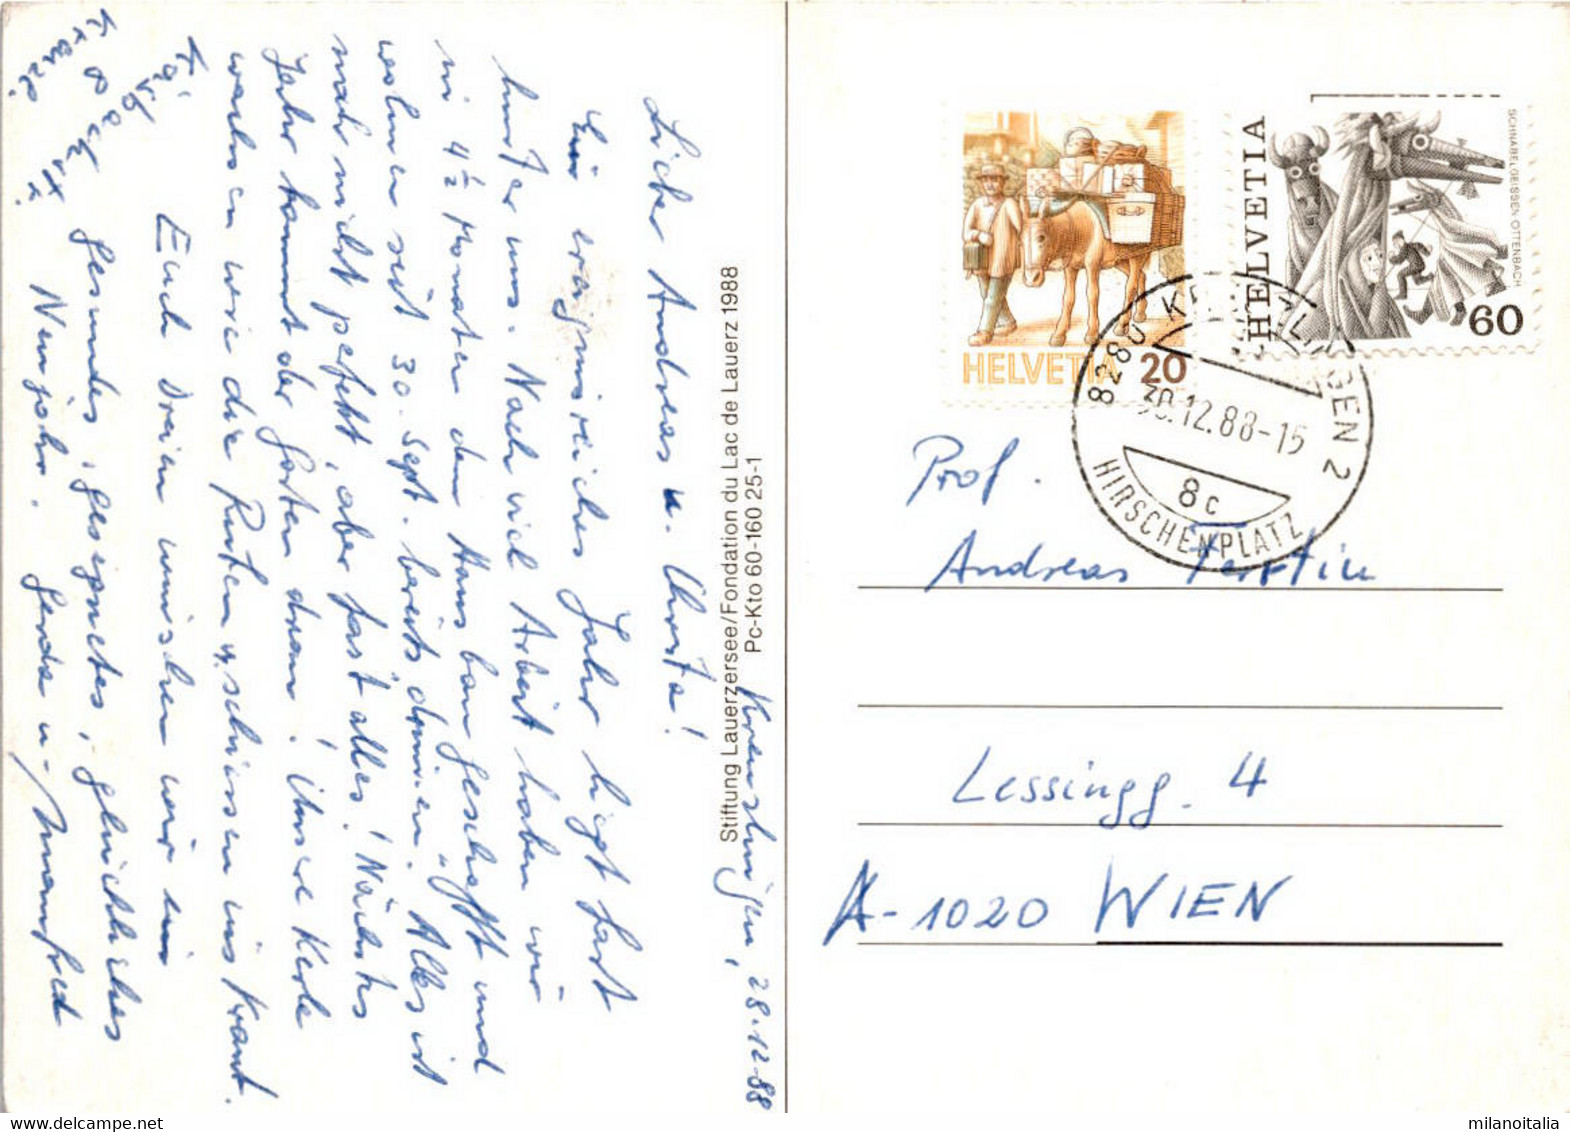 Kreuzlingen, 28.12.88
Lieber Andreas u. Christa!
Ein ereignisreiches Jahr liegt fast
hinter uns. Nach viel Arbeit haben wir
in 4 1/2 Monaten den Hausbau geschafft und
wohnen seit 30. Sept. bereits "drinnen". Alles ist
nicht perfekt, aber fast alles! Nächstes
Jahr kommt der Garten dran! Unsere Kerle
wachsen wie die Ruten u. schiessen ins Kraut.
Euch Dreien wünschen wir ein
gesundes, gesegnetes, glückliches
Neujahr. Gerda u. Manfred
Stiftung Lauerzersee/Fondation du Lac de Lauerz 1988
Pc-Kto 60-160 25-1
HELVETIA 20
HELVETIA 60
SCHNABELGEISSEN OTTENBACH
8280 KREUZLINGEN 2
30.12.88-15
8c
HIRSCHENPLATZ
Prof.
Andreas
Lessingg. 4
A-1020 WIEN
milanoitalia